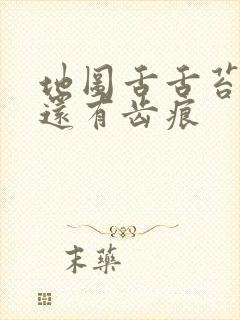 地圖舌舌苔
還有齿痕
末藥